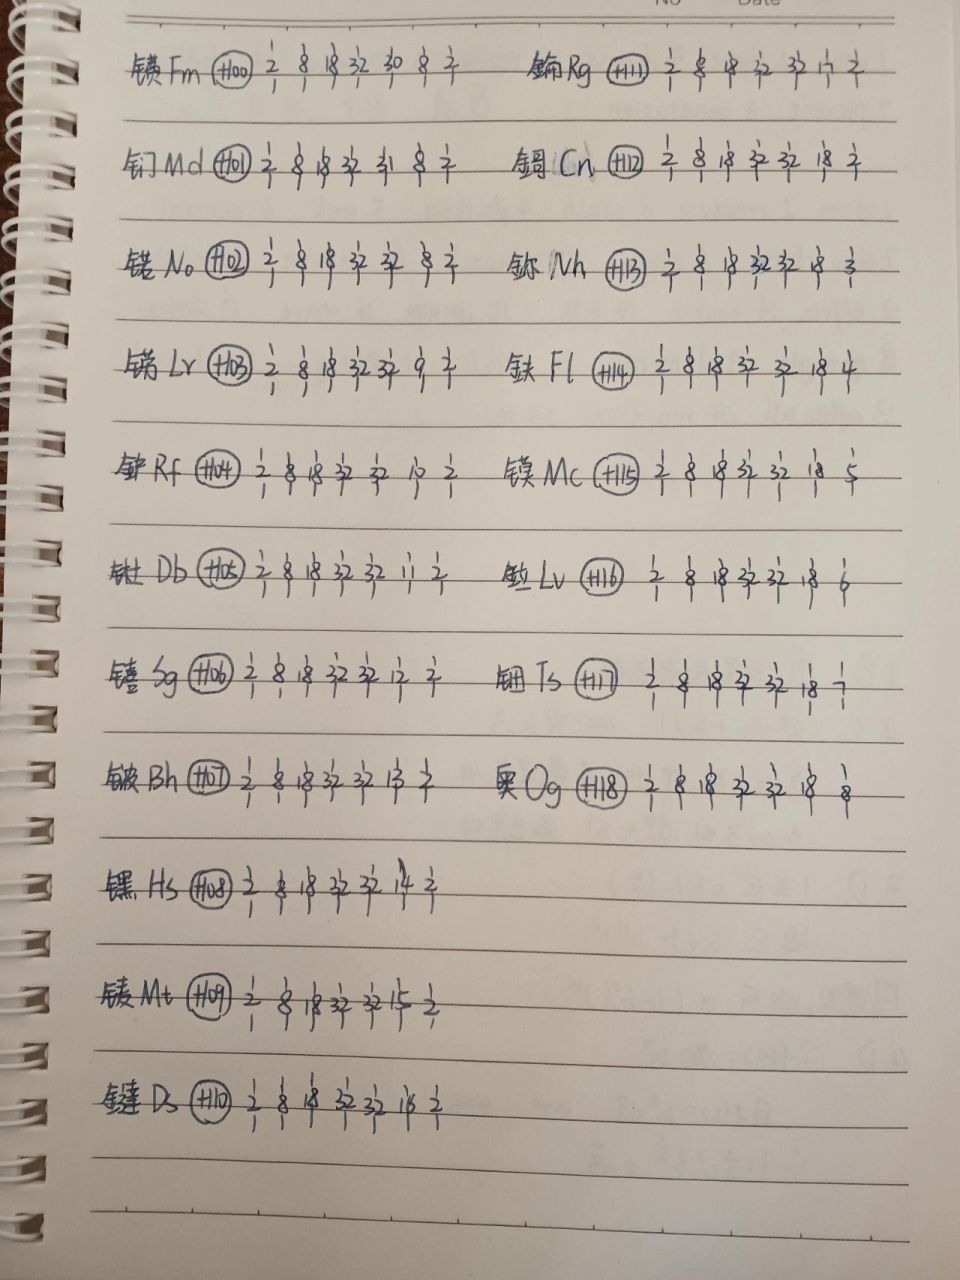 No Date
镄 Fm +100 2 8 18 32 30 8 2
钔 Md +101 2 8 18 32 31 8 2
锘 No +102 2 8 18 32 32 8 2
铹 Lr +103 2 8 18 32 32 9 2
𬬻 Rf +104 2 8 18 32 32 10 2
𬭊 Db +105 2 8 18 32 32 11 2
𬭳 Sg +106 2 8 18 32 32 12 2
𬭛 Bh +107 2 8 18 32 32 13 2
𬭶 Hs +108 2 8 18 32 32 14 2
鿏 Mt +109 2 8 18 32 32 15 2
𫟼 Ds +110 2 8 18 32 32 16 2
𬬭 Rg +111 2 8 18 32 32 17 2
鿔 Cn +112 2 8 18 32 32 18 2
鿭 Nh +113 2 8 18 32 32 18 3
𫓧 Fl +114 2 8 18 32 32 18 4
镆 Mc +115 2 8 18 32 32 18 5
𫟷 Lv +116 2 8 18 32 32 18 6
鿬 Ts +117 2 8 18 32 32 18 7
奥 Og +118 2 8 18 32 32 18 8